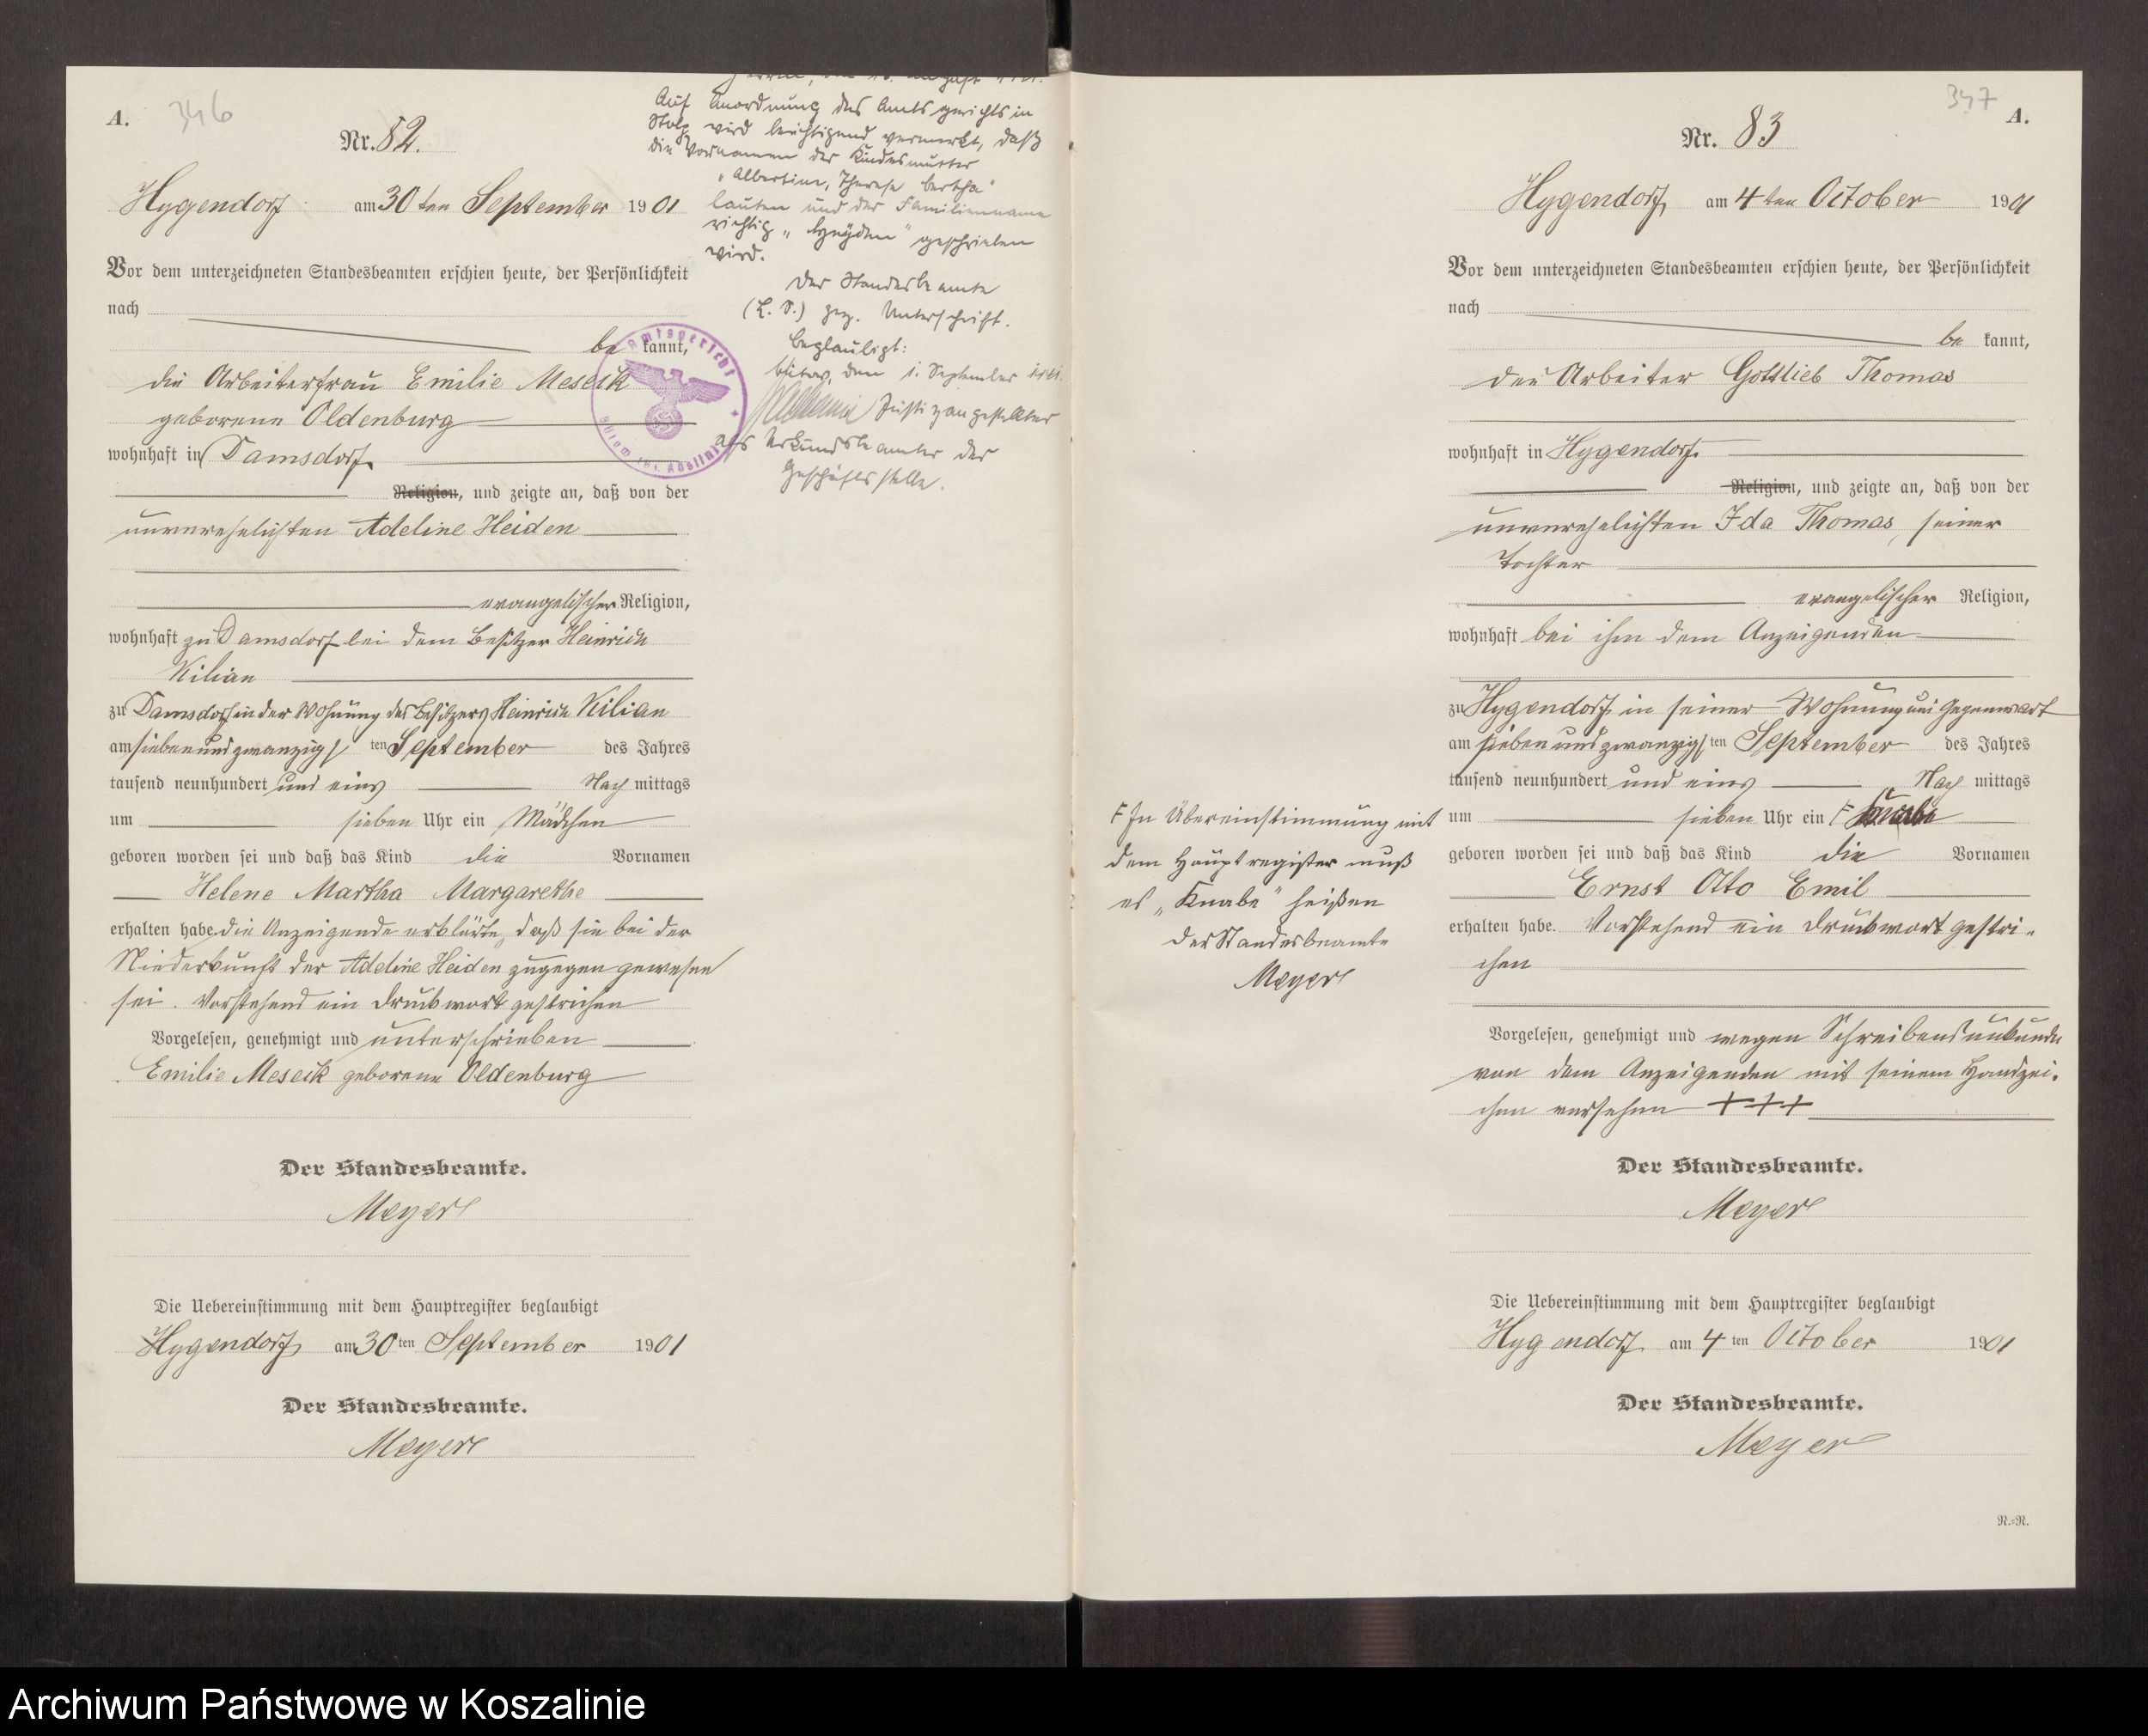 346
A.
Nr. 82.
Hygendorf am 30ten September 1901
Vor dem unterzeichneten Standesbeamten erschien heute, der Persönlichkeit
nach
bekannt,
die Arbeiterfrau Emilie Meseck
geborene Oldenburg
wohnhaft in Damsdorf
Religion, und zeigte an, daß von der
unverehelichten Adeline Heiden
evangelischer Religion,
wohnhaft zu Damsdorf bei dem Besitzer Heinrich
Kilian
zu Damsdorf in der Wohnung des Besitzers Heinrich Kilian
am siebenundzwanzigsten September des Jahres
tausend neunhundert und eins Nachmittags
um sieben Uhr ein Mädchen
geboren worden sei und daß das Kind die Vornamen
Helene Martha Margarethe
erhalten habe. die Anzeigende erklärte, daß sie bei der
Niederkunft der Adeline Heiden zugegen gewesen
sei. Vorstehend ein Druckwort gestrichen
Vorgelesen, genehmigt und unterschrieben
Emilie Meseck geborene Oldenburg
Der Standesbeamte.
Meyer
Die Uebereinstimmung mit dem Hauptregister beglaubigt
Hygendorf am 30ten September 1901
Der Standesbeamte.
Meyer
Auf Anordnung des Amtsgerichts in
Stolp wird berichtigend vermerkt, daß
die Vornamen der Kindesmutter
"Albertine, Therese Bertha"
lauten und der Familienname
richtig "Heyden" geschrieben
wird.
Der Standesbeamte
(L. S.) gez. Unterschrift.
Beglaubigt:
Bütow, den 1. September
Justizangestellter
als Urkundsbeamter der
Geschäftsstelle.
Amtsgericht
347
A.
Nr. 83
Hygendorf, am 4ten October 1901
Vor dem unterzeichneten Standesbeamten erschien heute, der Persönlichkeit
nach
bekannt,
der Arbeiter Gottlieb Thomas
wohnhaft in Hygendorf
Religion, und zeigte an, daß von der
unverehelichten Ida Thomas, seiner
Tochter
evangelischer Religion,
wohnhaft bei ihm dem Anzeigenden
zu Hygendorf in seiner Wohnung und Gegenwart
am siebenundzwanzigsten September des Jahres
tausend neunhundert und eins Nachmittags
um sieben Uhr ein F Knabe
geboren worden sei und daß das Kind die Vornamen
Ernst Otto Emil
erhalten habe. Vorstehend ein Druckwort gestri-
chen
Vorgelesen, genehmigt und wegen Schreibensunkunde
von dem Anzeigenden mit seinem Handzei-
chen versehen +++
Der Standesbeamte.
Meyer
Die Uebereinstimmung mit dem Hauptregister beglaubigt
Hygendorf am 4ten October 1901
Der Standesbeamte.
Meyer
F In Übereinstimmung mit
dem Hauptregister muß
es "Knabe" heißen
Der Standesbeamte
Meyer
R.-R.
Archiwum Państwowe w Koszalinie